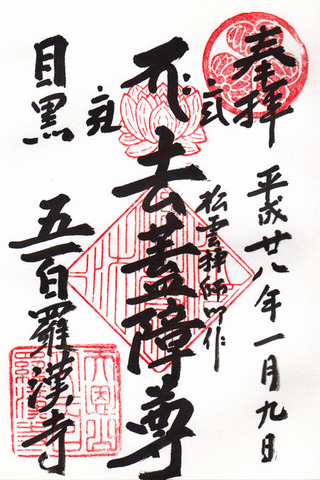 奉拝
平成廿八年一月九日
松雲禅師御作
去蓋障尊
目黒
五百羅漢寺